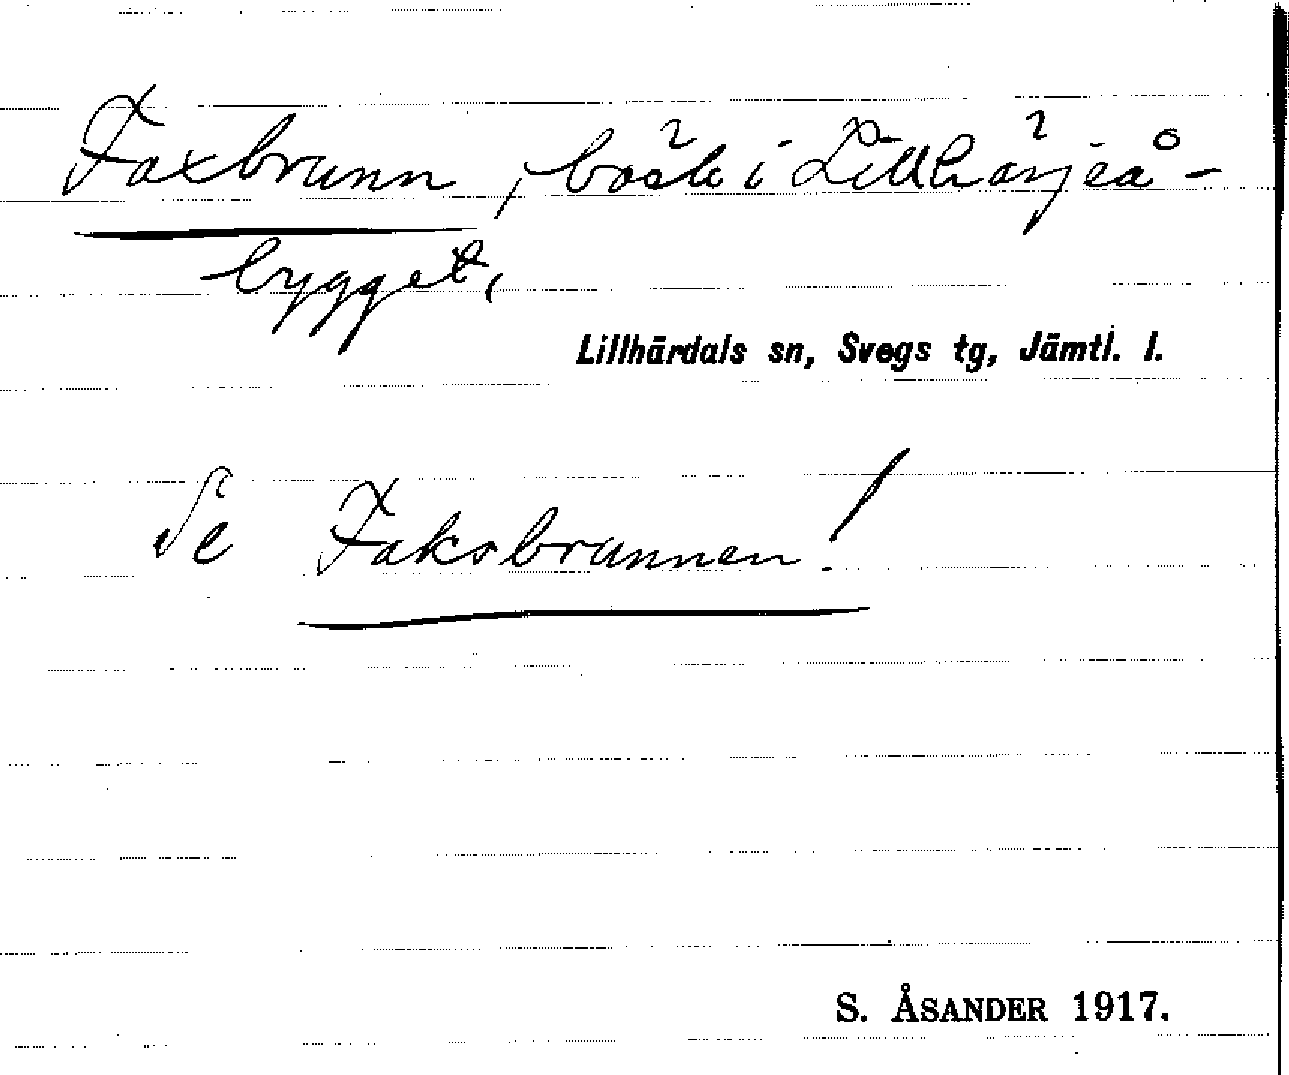 Faxbrunn, bäck i Lillhärjeå-
bygget,
Lillhärdals sn, Svegs tg, Jämtl. l.
Se Faksbrunnen!
S. ÅSANDER 1917.